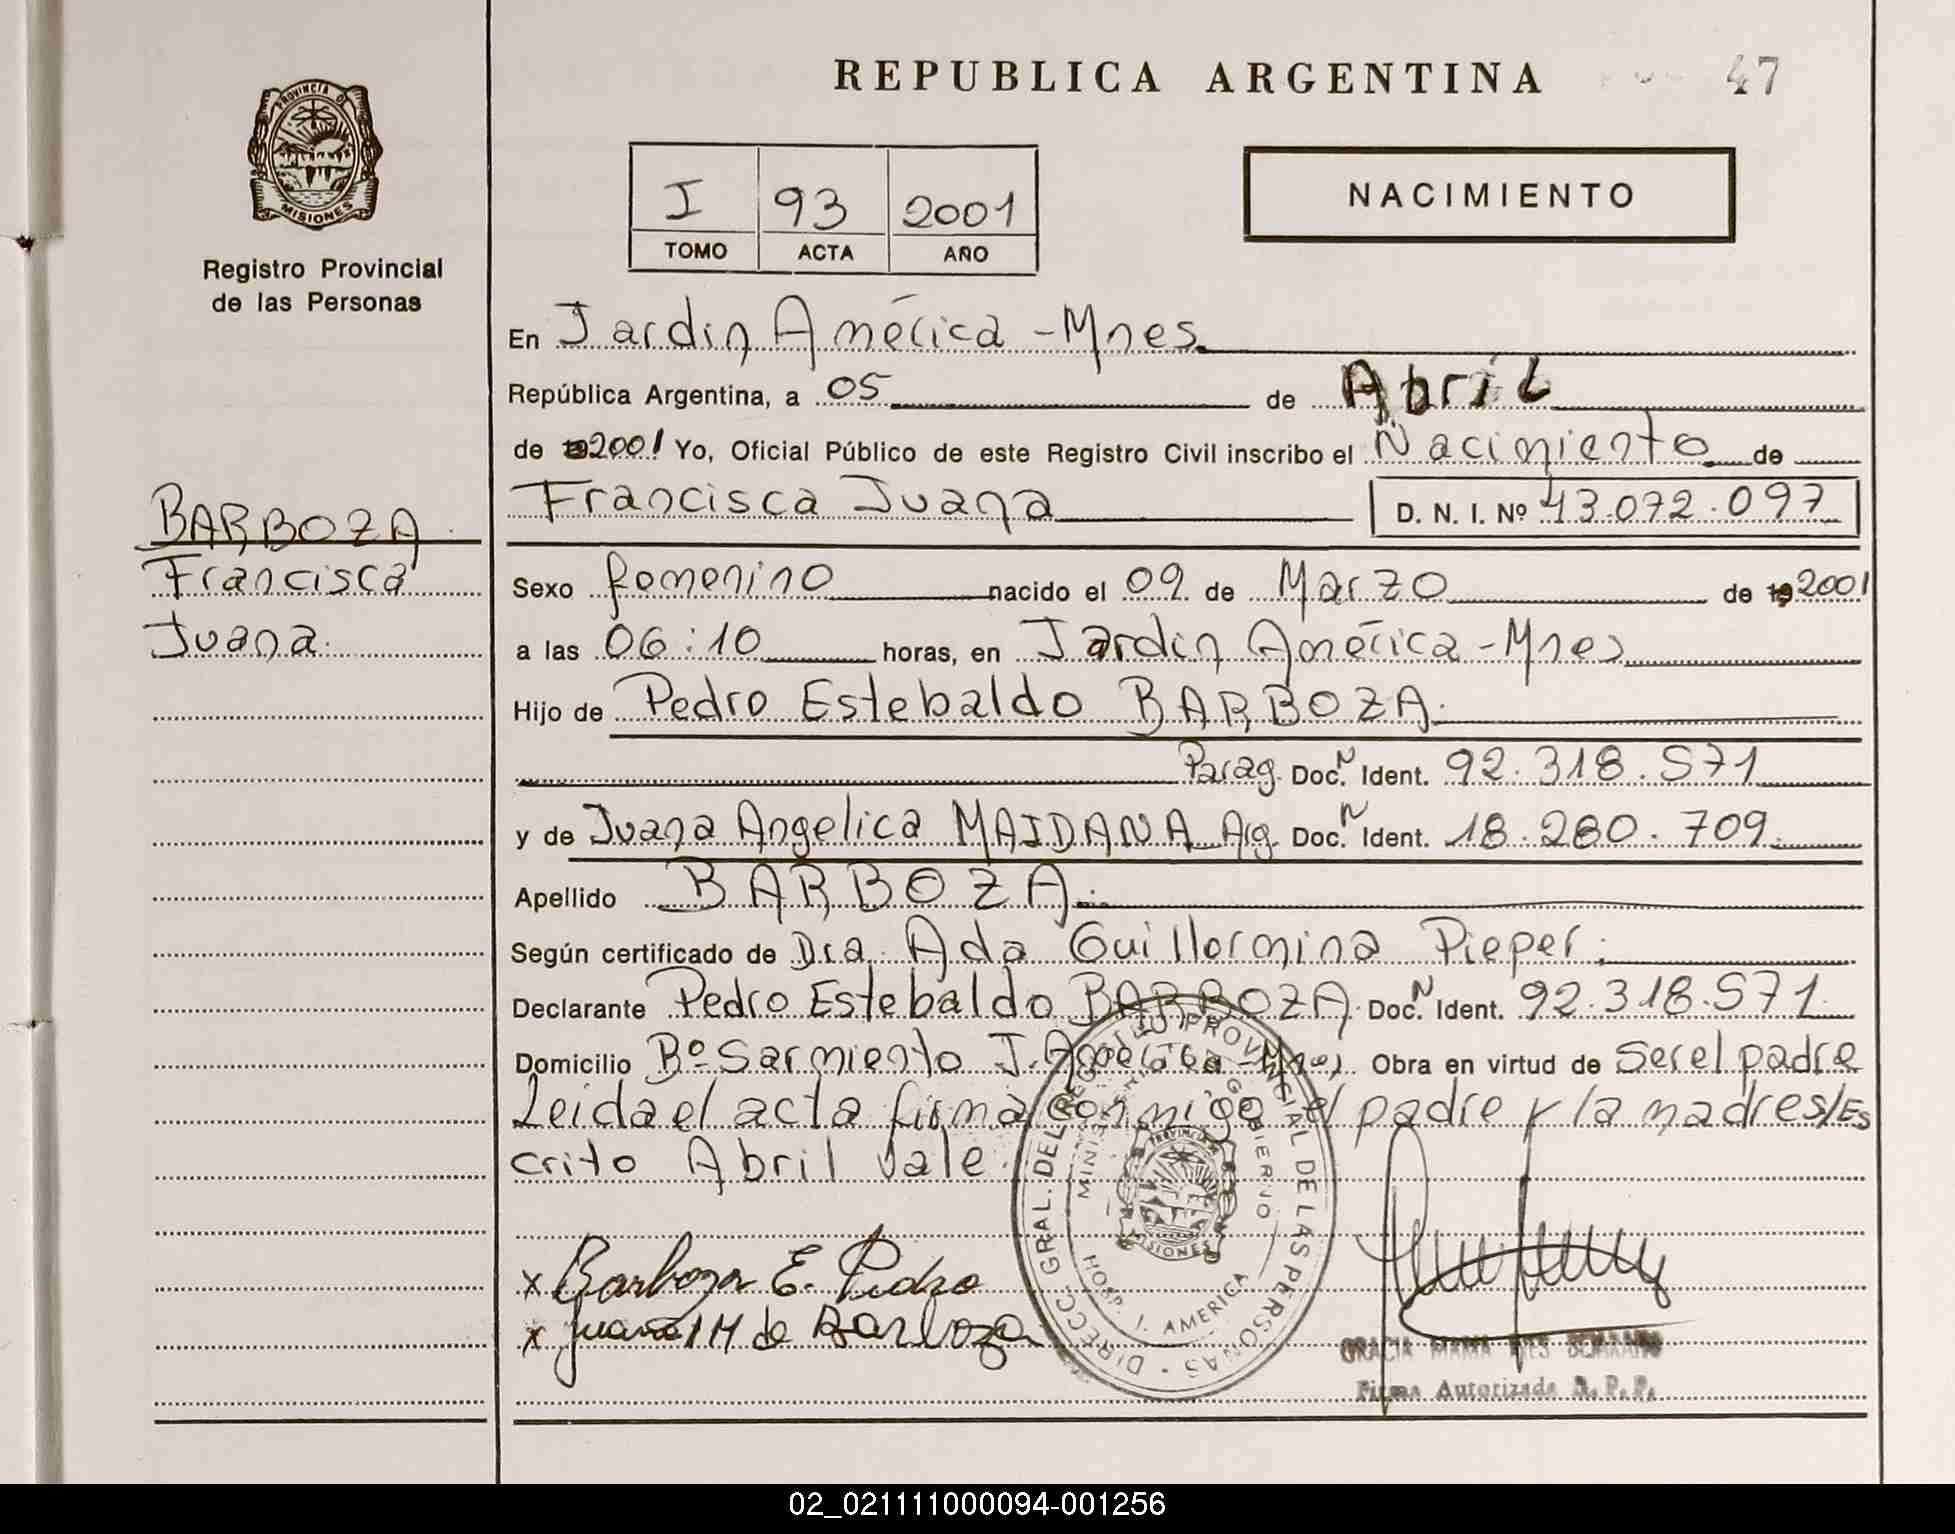 REPUBLICA ARGENTINA
47
PROVINCIA DE
MISIONES
Registro Provincial
de las Personas
I 93 2001
TOMO ACTA AÑO
NACIMIENTO
En Jardín América - Mnes.
República Argentina, a 05 de Abril
de 2001 Yo, Oficial Público de este Registro Civil inscribo el Nacimiento de
Francisca Juana D. N. I. Nº 43.072.097
BARBOZA
Francisca
Juana.
Sexo femenino nacido el 09 de Marzo de 2001
a las 06:10 horas, en Jardín América - Mnes
Hijo de Pedro Estebaldo BARBOZA.
Parag. Doc. N Ident. 92.318.571
y de Juana Angelica MAIDANA Arg. Doc. N Ident. 18.280.709.
Apellido BARBOZA.
Según certificado de Dra. Ada Guillermina Pieper.
Declarante Pedro Estebaldo BARBOZA. Doc. N Ident. 92.318.571
Domicilio Bº Sarmiento J. América - Mnes, Obra en virtud de ser el padre
Leida el acta firma conmigo el padre y la madre s/Es
crito Abril vale.
x Barboza E. Pedro
x Juana M de Barboza
DIRECC. GRAL. DEL REGISTRO PROVINCIAL DE LAS PERSONAS
GOBIERNO
HOSP. J. AMERICA
PROVINCIA
MISIONES
GRACIA MARIA INES
Firma Autorizada R.P.P.
02_021111000094-001256